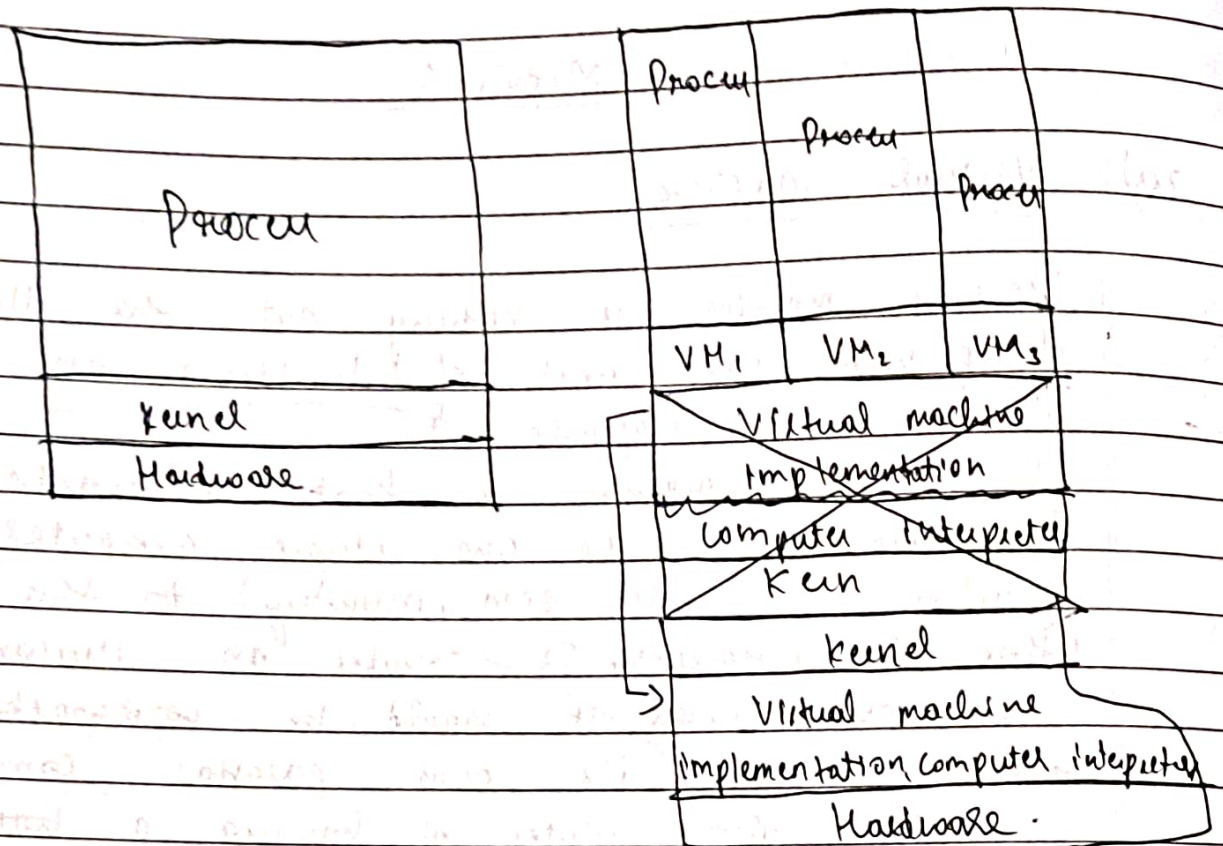 Process
Kernel
Hardware
Process
Process
Process
VM1
VM2
VM3
Virtual machine
implementation
computer interpreter
Kern
Kernel
Virtual machine
implementation, computer interpreter
Hardware.